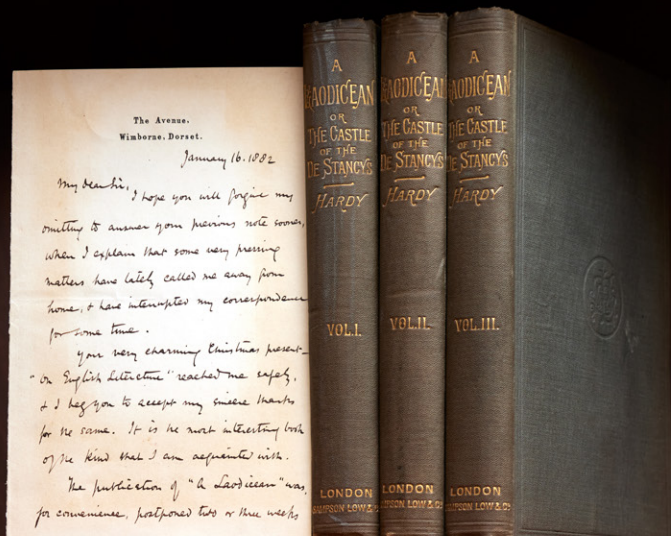 The Avenue.
Wimborne, Dorset.
January 16. 1882
My dear Sir,
I hope you will forgive my
omitting to answer your previous note sooner,
when I explain that some very pressing
matters have lately called me away from
home, & have interrupted my correspondence
for some time.
Your very charming Christmas present—
"On English Literature" reached me safely,
& I beg you to accept my sincere thanks
for the same. It is the most interesting book
of the kind that I am acquainted with.
The publication of "A Laodicean" was,
for convenience, postponed two or three weeks
A
LAODICEAN
OR
THE CASTLE
OF THE
DE STANCYS
HARDY
VOL. I.
LONDON
SAMPSON LOW & Co
A
LAODICEAN
OR
THE CASTLE
OF THE
DE STANCYS
HARDY
VOL. II.
LONDON
SAMPSON LOW & Co
A
LAODICEAN
OR
THE CASTLE
OF THE
DE STANCYS
HARDY
VOL. III.
LONDON
SAMPSON LOW & Co